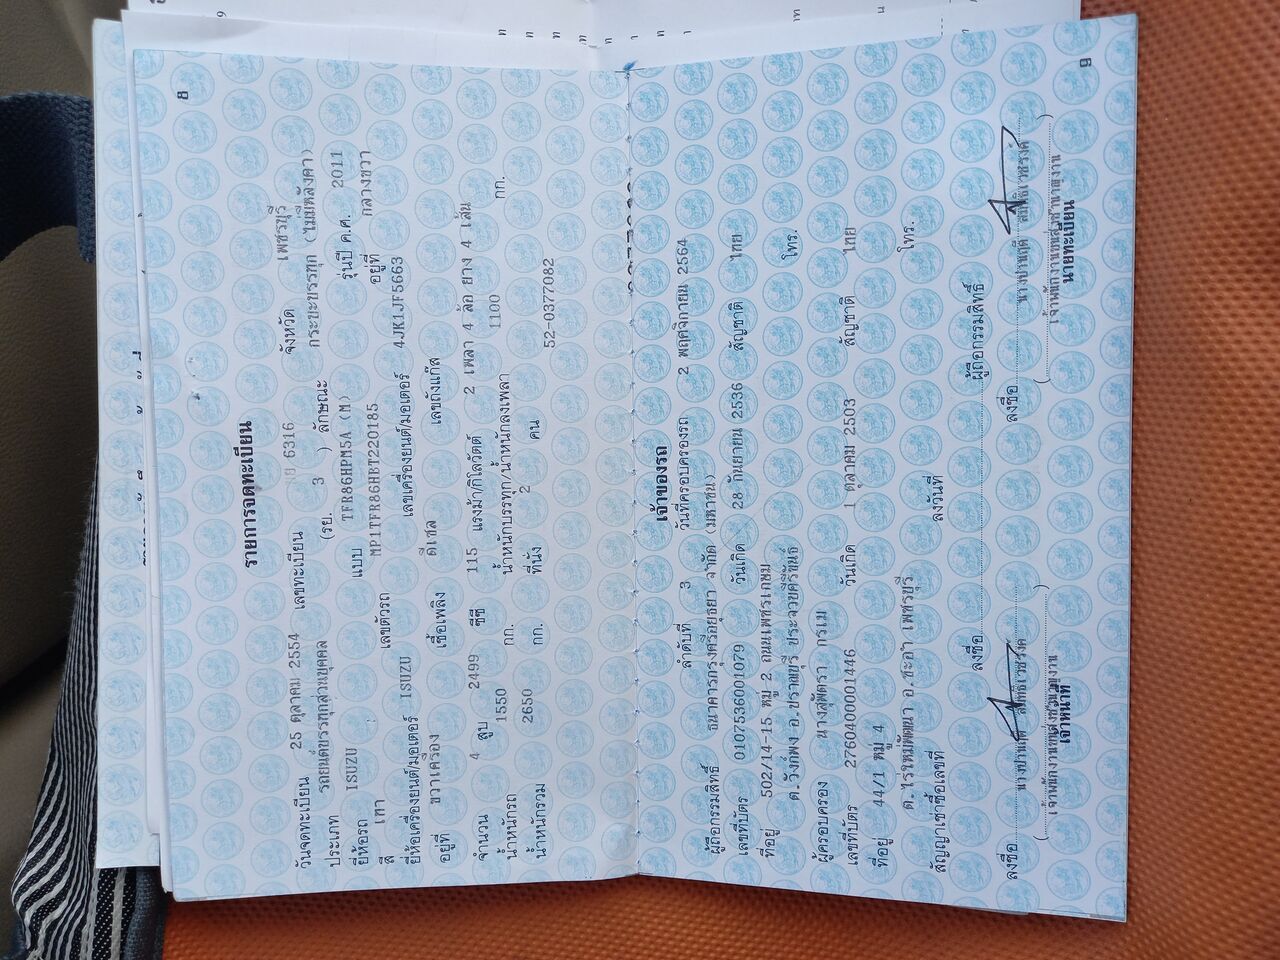 8
รายการจดทะเบียน
วันจดทะเบียน 25 ตุลาคม 2554 เลขทะเบียน ย 6316 จังหวัด เพชรบุรี
ประเภท รถยนต์บรรทุกส่วนบุคคล (รย. 3 ) ลักษณะ กระบะบรรทุก (ไม่มีหลังคา)
ยี่ห้อรถ ISUZU แบบ TFR86HPM5A (M) รุ่นปี ค.ศ. 2011
สี เทา เลขตัวรถ MP1TFR86HBT220185 อยู่ที่ กลางขวา
ยี่ห้อเครื่องยนต์/มอเตอร์ ISUZU เลขเครื่องยนต์/มอเตอร์ 4JK1JF5663
อยู่ที่ ขวาเครื่อง เชื้อเพลิง ดีเซล เลขถังแก๊ส
จำนวน 4 สูบ 2499 ซีซี 115 แรงม้า/กิโลวัตต์ 2 เพลา 4 ล้อ ยาง 4 เส้น
น้ำหนักรถ 1550 กก. น้ำหนักบรรทุก/น้ำหนักลงเพลา 1100 กก.
น้ำหนักรวม 2650 กก. ที่นั่ง 2 คน
52-0377082
9
เจ้าของรถ
ลำดับที่ 3 วันที่ครอบครองรถ 2 พฤศจิกายน 2564
ผู้ถือกรรมสิทธิ์ ธนาคารกรุงศรีอยุธยา จำกัด (มหาชน)
เลขที่บัตร 0107536001079 วันเกิด 28 กันยายน 2536 สัญชาติ ไทย
ที่อยู่ 502/14-15 หมู่ 2 ถนนเพชรเกษม
ต.วังก์พง อ.ปราณบุรี ประจวบคีรีขันธ์ โทร.
ผู้ครอบครอง นางสุพัตรา กรเม
เลขที่บัตร 2760400001446 วันเกิด 1 ตุลาคม 2503 สัญชาติ ไทย
ที่อยู่ 44/1 หมู่ 4
ต.ไร่ใหม่พัฒนา อ.ชะอำ เพชรบุรี โทร.
สัญญาเช่าซื้อเลขที่ ลงวันที่
ลงชื่อ ผู้ถือกรรมสิทธิ์
ลงชื่อ นางปานฤดี ลงชื่อ นางปานฤดี
( ) ( )
เจ้าหน้าที่ นายทะเบียน